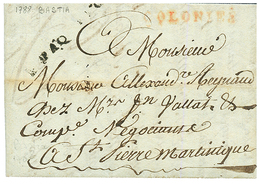 1788 BASTIA
COLONIES
PAQ
Monsieur
Monsieur Allexandre Reynaud
chez Mrs
Compe Négociants
a St Pierre Martinique